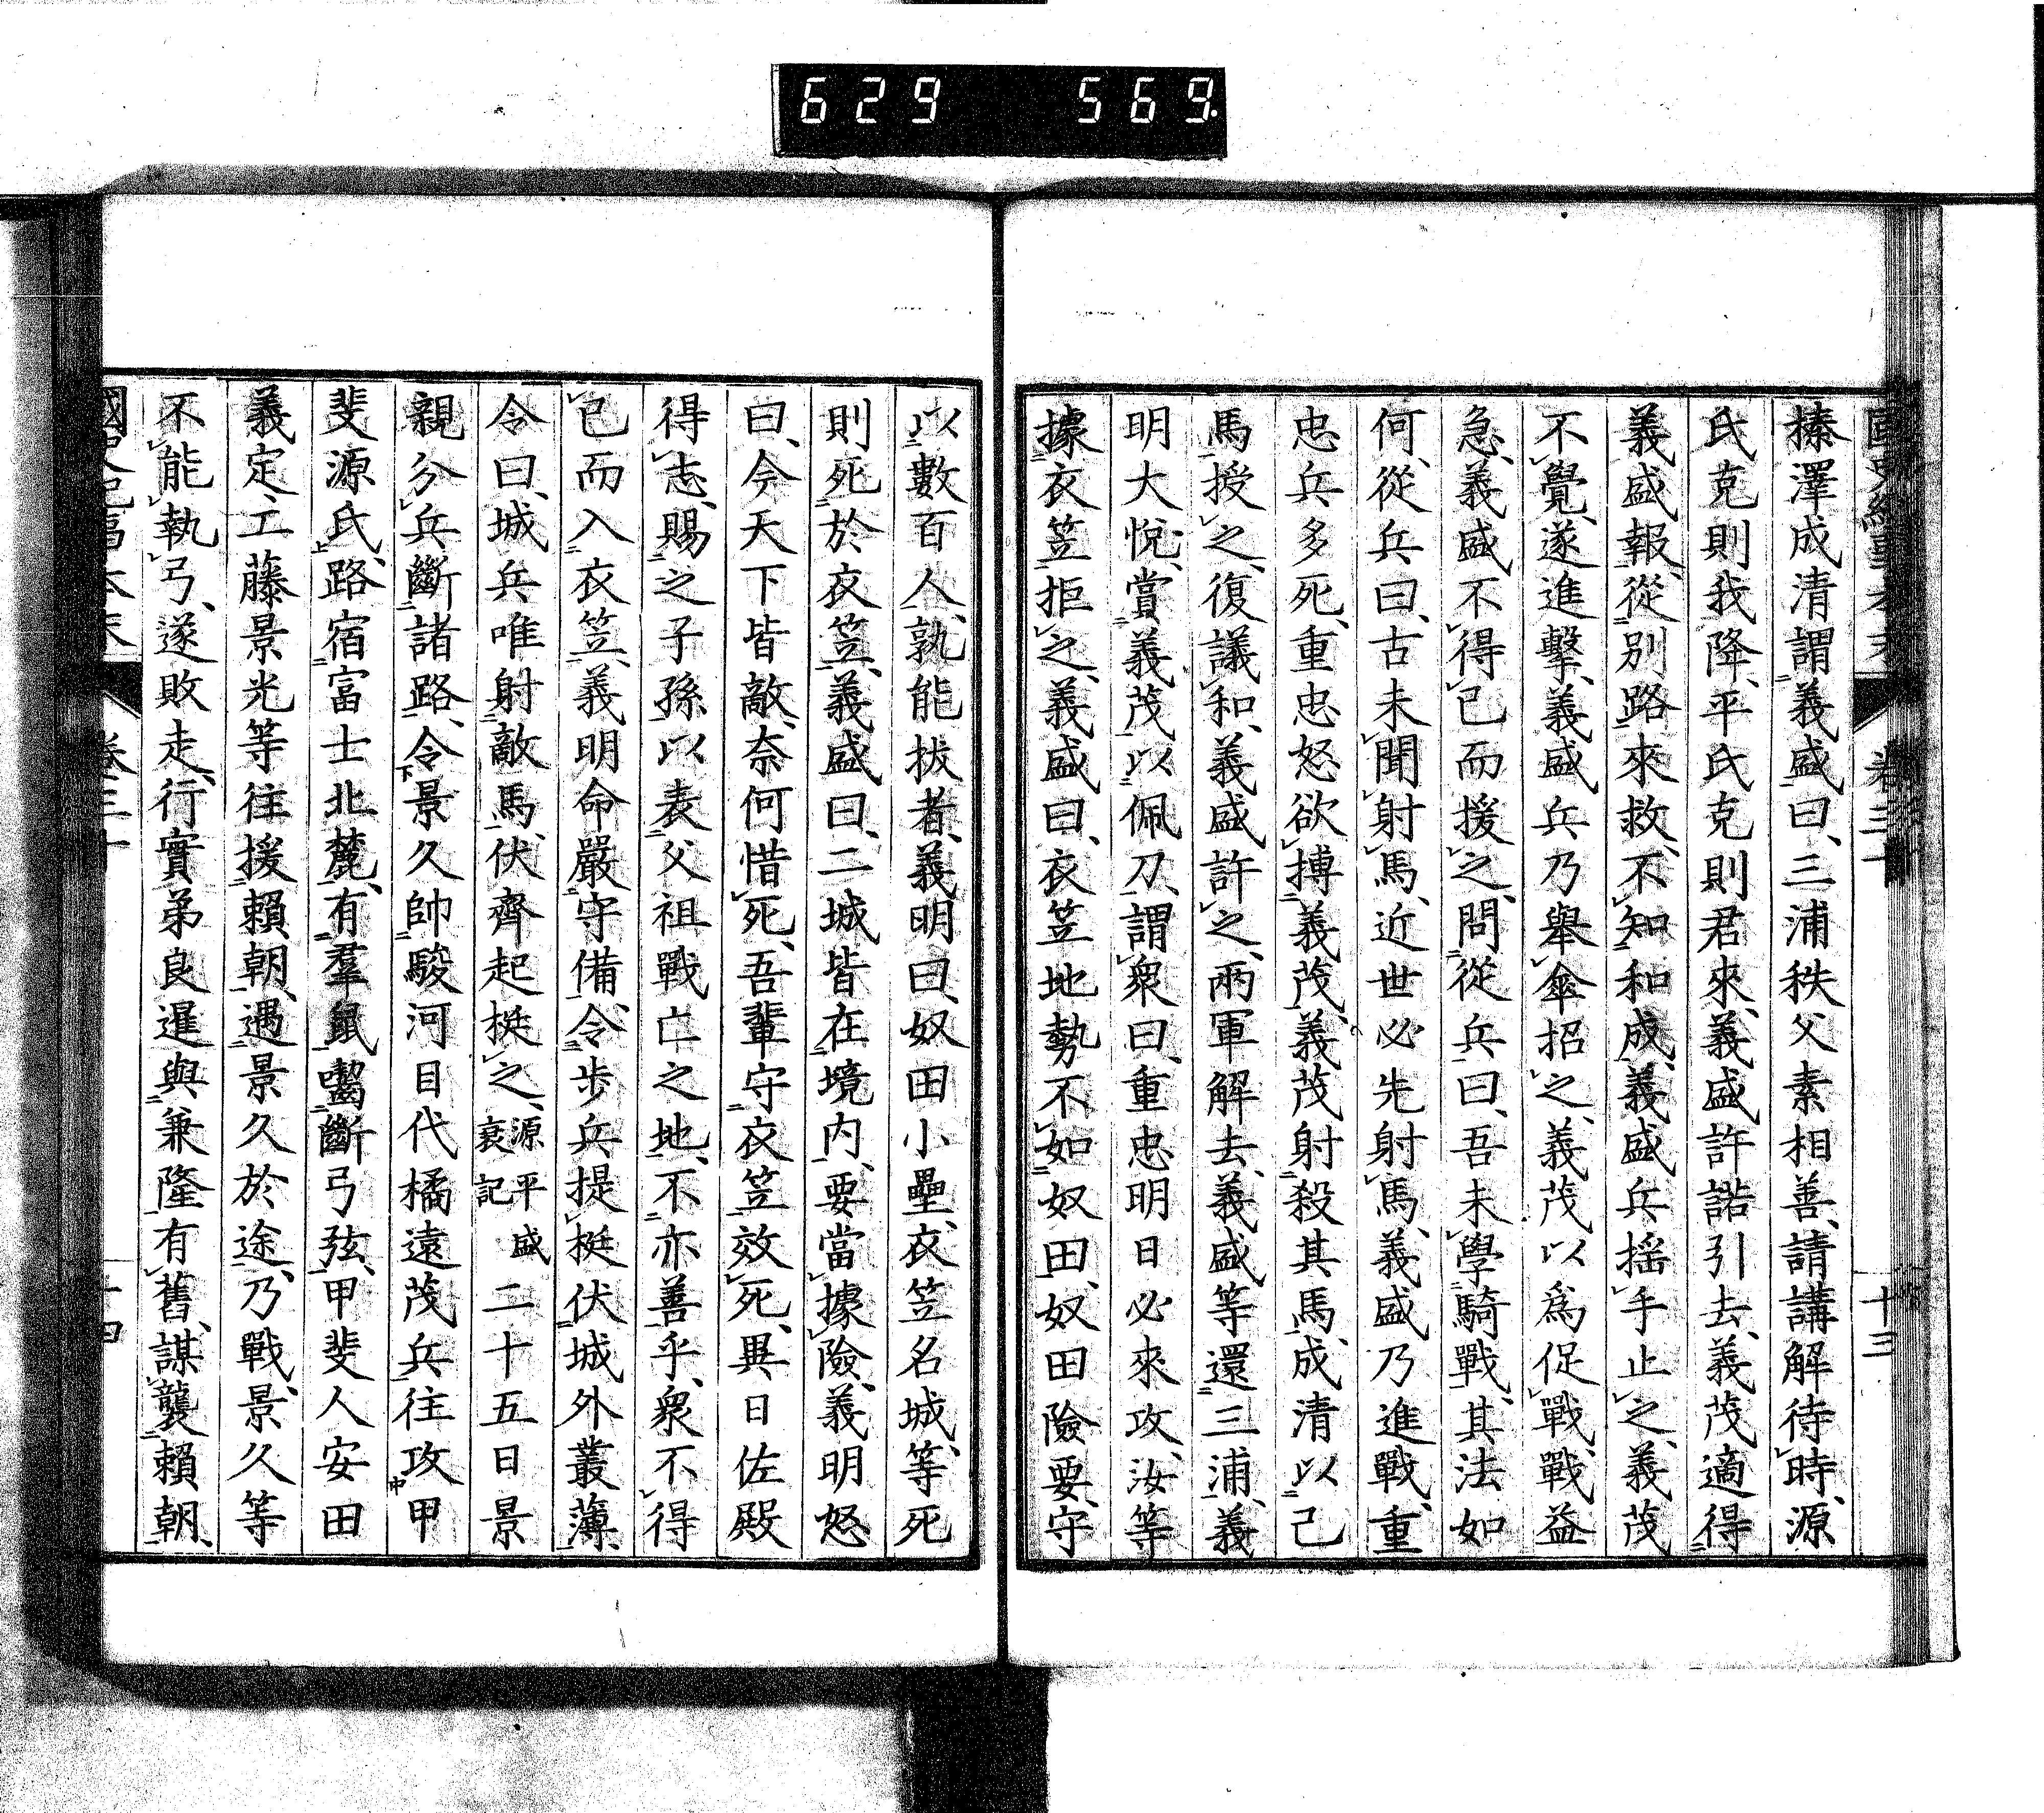 629 569
十三
榛澤成清謂義盛曰、三浦秩父素相善、請講解待時、源
氏克則我降、平氏克則君來、義盛許諾引去、義茂適得
義盛報、從別路來救、不知和成、義盛兵揺手止之、義茂
不覺、遂進擊、義盛兵乃舉傘招之、義茂以爲促戰、戰益
急、義盛不得已而援之、問從兵曰、吾未學騎戰、其法如
何、從兵曰、古未聞射馬、近世必先射馬、義盛乃進戰、重
忠兵多死、重忠怒欲搏義茂、義茂射殺其馬、成清以己
馬授之、復議和、義盛許之、兩軍解去、義盛等還三浦、義
明大悅、賞義茂以佩刀、謂衆曰、重忠明日必來攻、汝等
據衣笠拒之、義盛曰、衣笠地勢不如奴田、奴田險要、守
以數百人、孰能拔者、義明曰、奴田小壘、衣笠名城、等死
則死於衣笠、義盛曰、二城皆在境内、要當據險、義明怒
曰、今天下皆敵、奈何惜死、吾輩守衣笠效死、異日佐殿
得志、賜之子孫以表父祖戰亡之地、不亦善乎、衆不得
已而入衣笠、義明命嚴守備、令步兵提梃伏城外叢薄、
令曰、城兵唯射敵馬、伏齊起挺之、源平盛衰記二十五日景
親分兵斷諸路、令景久帥駿河目代橘遠茂兵往攻甲
斐源氏、路宿富士北麓、有羣鼠齧斷弓弦、甲斐人安田
義定、工藤景光等往援賴朝、遇景久於途、乃戰、景久等
不能執弓、遂敗走、行實弟良暹與兼隆有舊、謀襲賴朝、
國史紀事本末 卷三十 十四